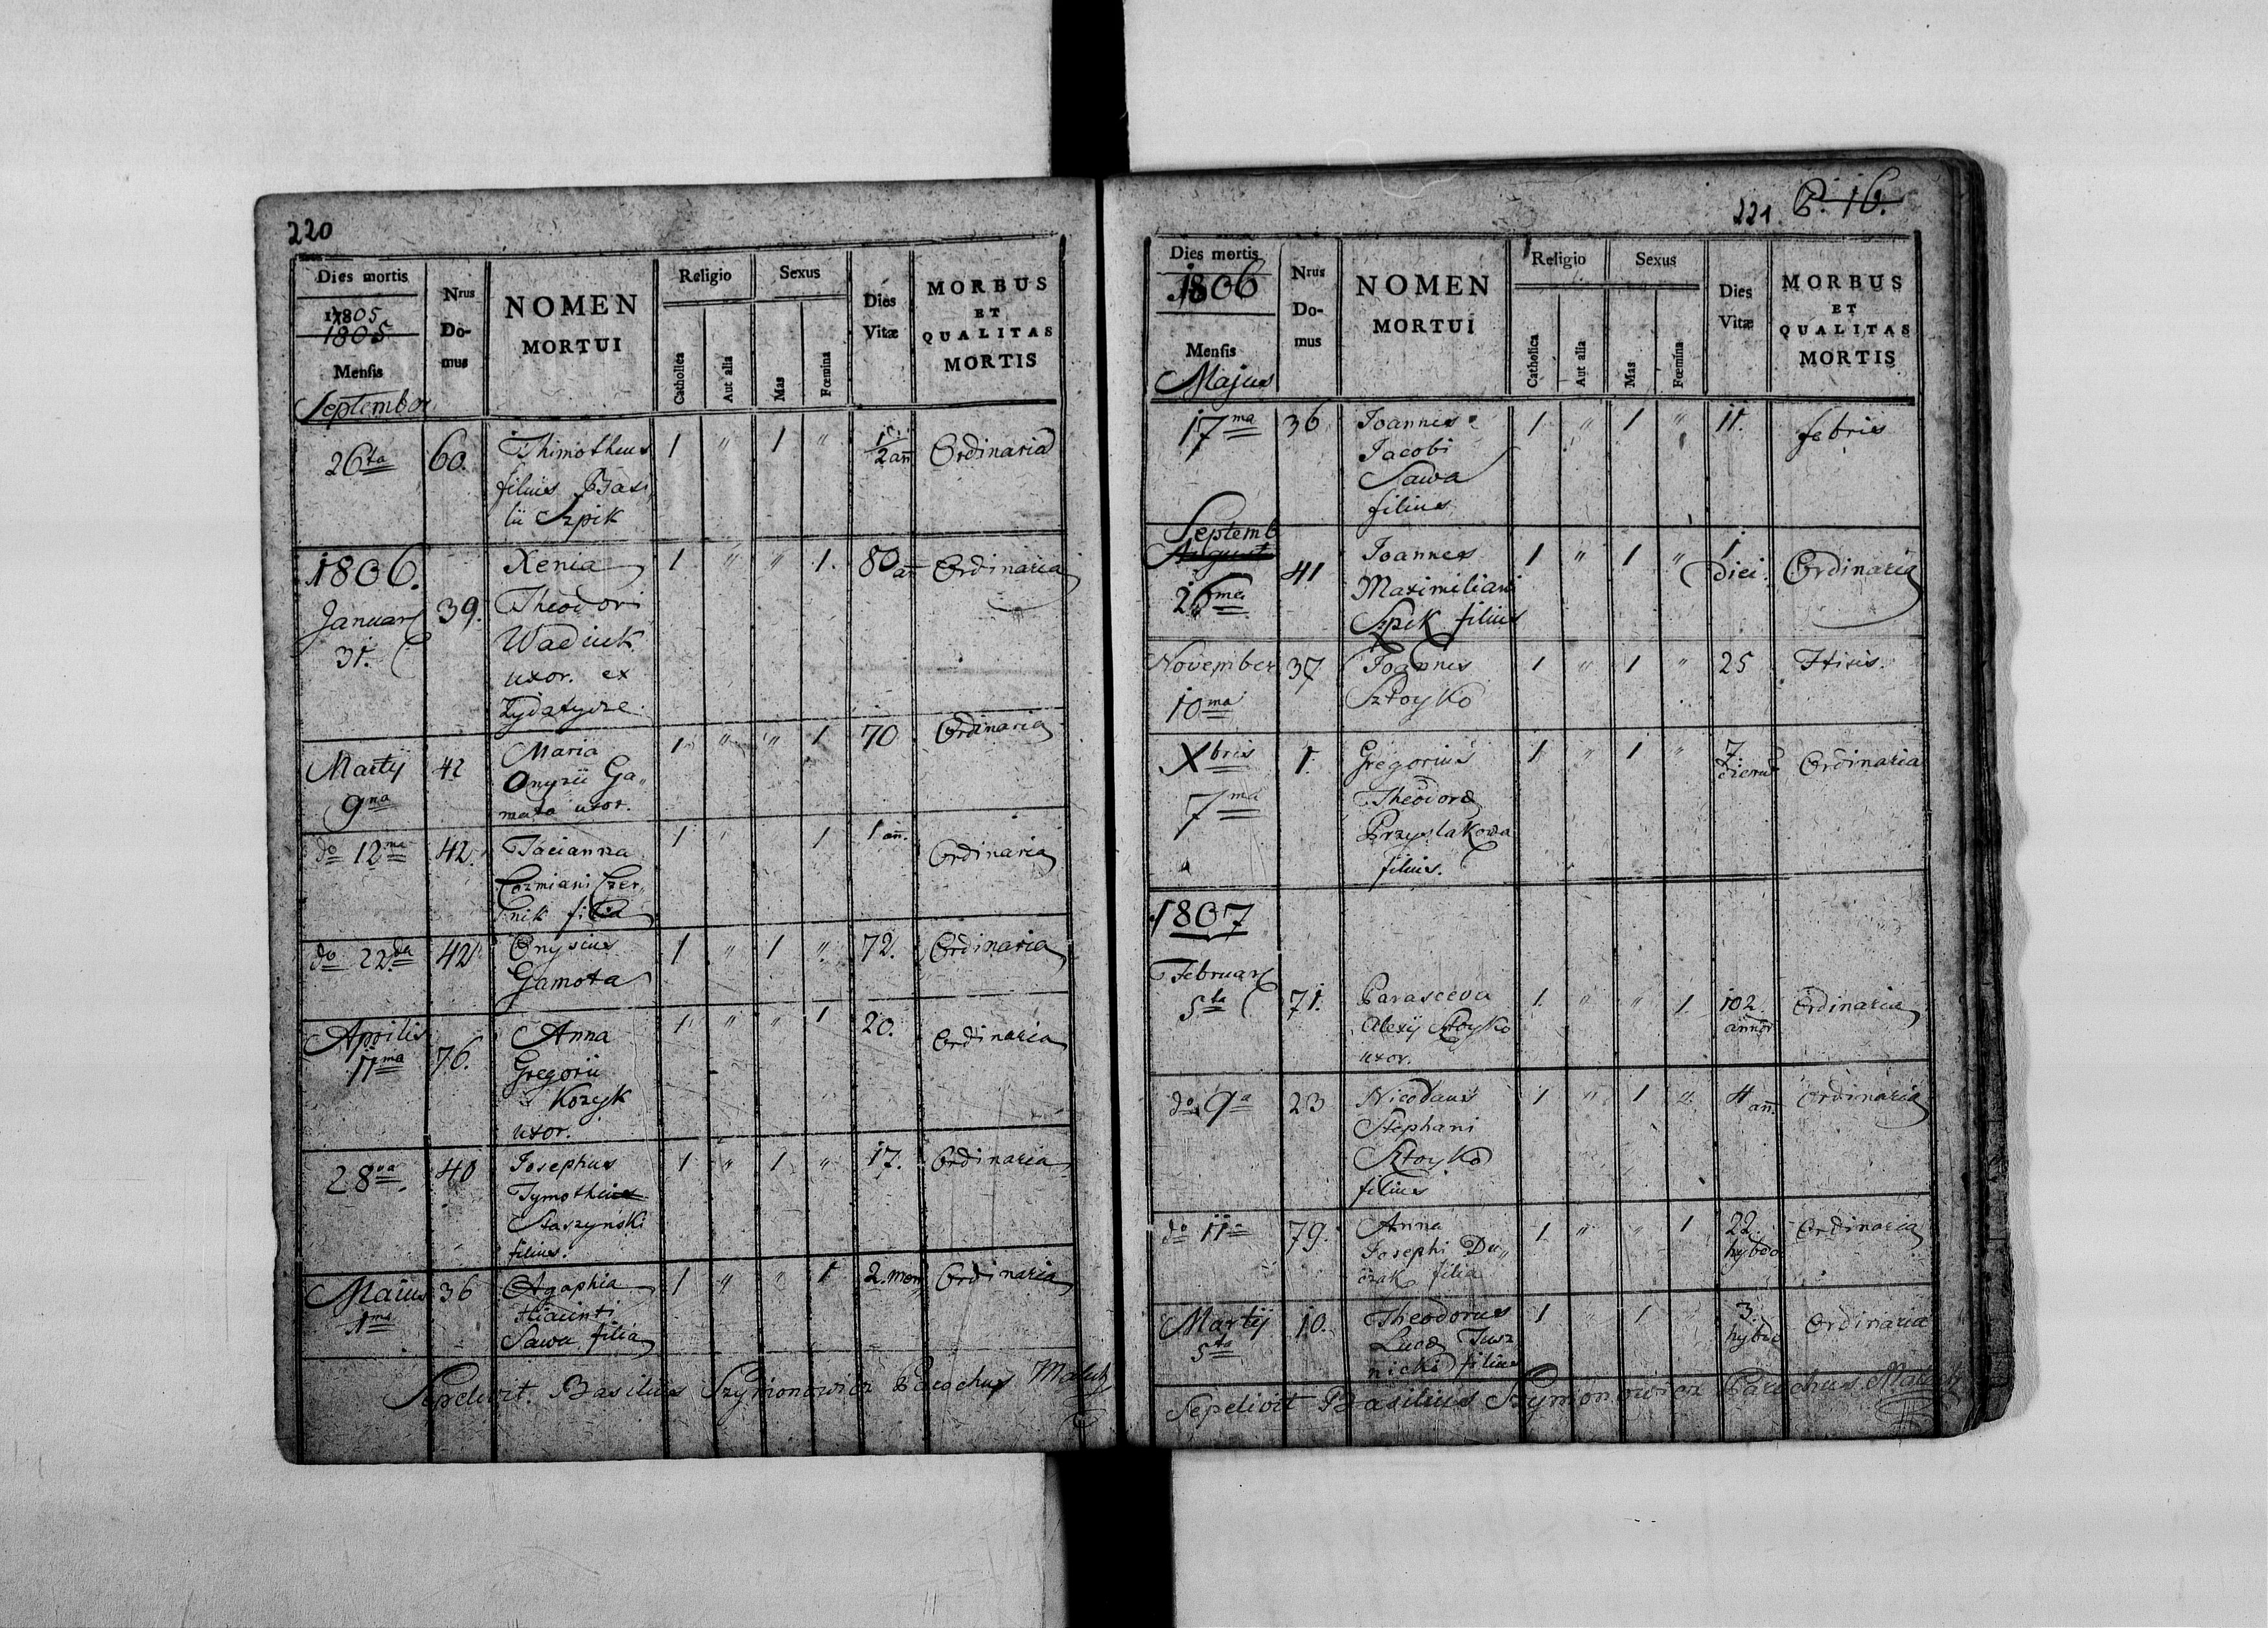 220
Dies mortis
1805
1805
Mensis
September
Nrus
Do-
mus
NOMEN
MORTUI
Religio
Catholica
Aut alia
Sexus
Mas
Fœmina
Dies
Vitæ
MORBUS
ET
QUALITAS
MORTIS
26ta 60. Thimotheus 1 " 1 " 1/2 an Ordinaria
filius Basi
lii Szpik
1806. Xenia 1 " " 1. 80 an Ordinaria
Januar 39. Theodori
31. Wadiuk
uxor. ex
Zydatycze.
Martij 42 Maria 1 " " 1 70 Ordinaria
9na Onyzii Ga"
mata uxor.
do 12ma 42. Tacianna 1 " 1 1 an. Ordinaria
Cozmiani Czer"
nik filia
do 22da 42 Onysius 1 " 1 " 72. Ordinaria
Gamota
Aprilis Anna 1 " " 1 20. Ordinaria
11ma 76. Gregorii
Kozyk
uxor.
28va. 40 Josephus 1 " 1 " 17. Ordinaria
Tymotheius
Staszynski
filius.
Maius 36 Agaphia 1 " " 1 2. men Ordinaria
1ma Hiacinti
Sawa filia
Sepelivit. Basilius Szymonowicz Parochus
221. P. 16.
Dies mortis
1806
Mensis
Majus
Nrus
Do-
mus
NOMEN
MORTUI
Religio
Catholica
Aut alia
Sexus
Mas
Fœmina
Dies
Vitæ
MORBUS
ET
QUALITAS
MORTIS
17ma 36 Joannes 1 " 1 " 11. febris
Jacobi
Sawa
filius
Septemb
August 41 Joannes 1 " 1 " 1 Ordinaria
26ma Maximiliani diei
Szpik filius
November 37 Joannes 1 " 1 " 25 Htisis.
10ma Sztoyko
Xbris 1. Gregorius 1 " 1 " 7 Ordinaria
7ma Theodora dierum
Przyslakowa
filius.
1807
Februar
5ta 71. Parasceva 1. " " 1. 102 Ordinaria
Alexij Sztoyko annor
uxor.
do 9a 23 Nicodaus 1 " 1 " 4 an. Ordinaria
Stephani
Sztoyko
filius
do 11a 79. Anna 1. " " 1 22 Ordinaria
Josephi Du" hybdo
czak filia
Martij 10. Theodorus 1 " 1 3. Ordinaria
5ta Lucæ hybdo
nicki filius
Sepelivit Basilius Szymonowicz Parochus